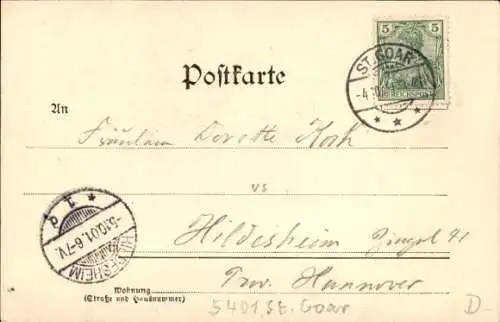 5 5
REICHSPOST
ST. GOAR
-4.10
Postkarte
An
Fräulein Dorette Koch
Hildesheim Zingel 41
Prov. Hannover
* 1 d
-5.10.01.6-7V.
HILDESHEIM
Wohnung
(Straße und Hausnummer)
5401, St. Goar
D